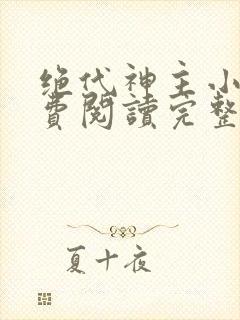 绝代神主小
費閱讀完整
夏十夜